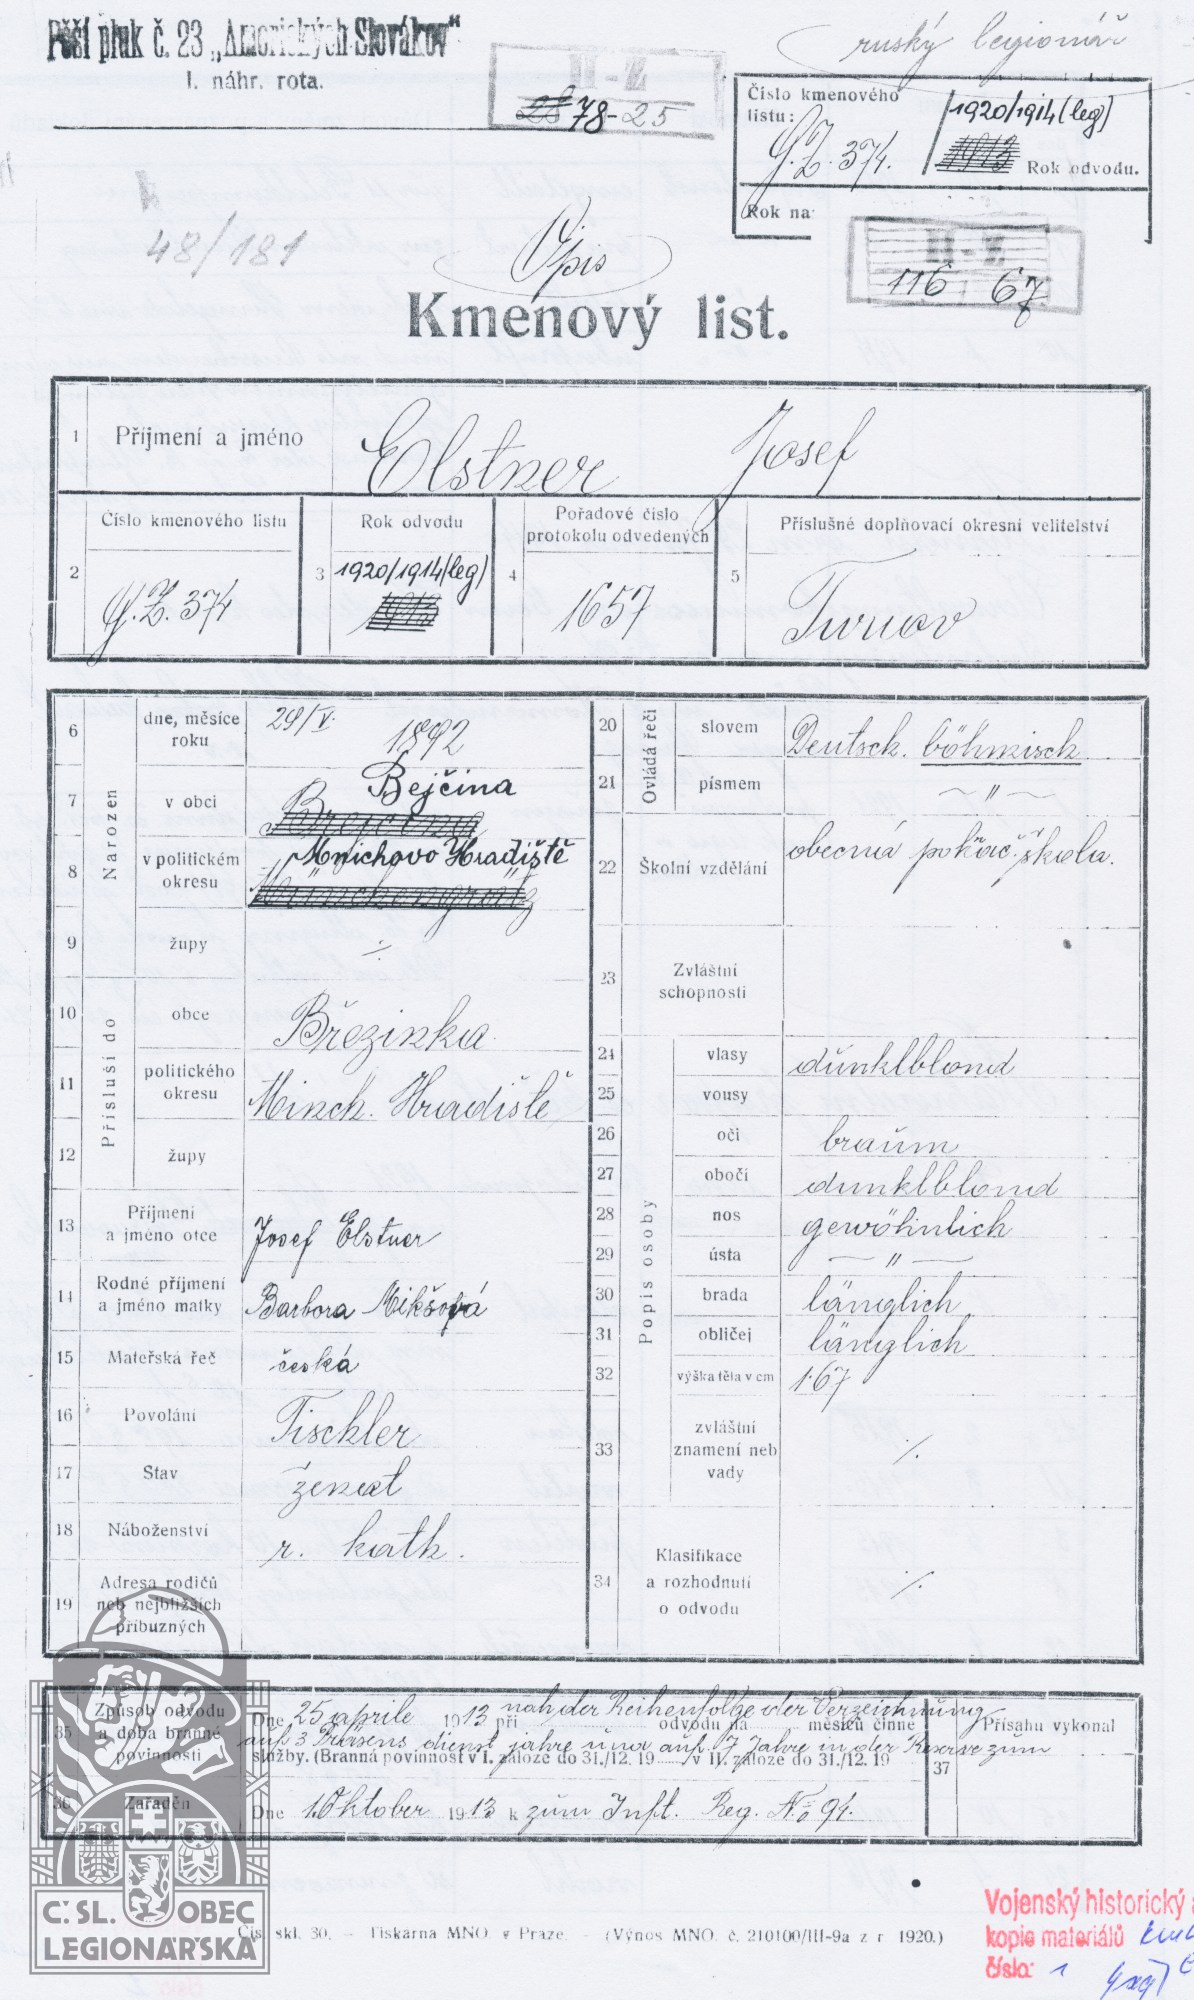 Pěší pluk č. 23 „Amerických Slovákov“
I. náhr. rota.
ruský legionář
H-Z
78-25
Číslo kmenového listu:
G.Z. 374.
1920/1914 (leg)
1913
Rok odvodu.
Rok na
48/181
H-Z
116 67
Výpis
Kmenový list.
1 Příjmení a jméno Elstner Josef
2 Číslo kmenového listu G.Z. 374
3 Rok odvodu 1920/1914 (leg)
1913
4 Pořadové číslo protokolu odvedených 1657
5 Příslušné doplňovací okresní velitelství Turnov
Narozen
6 dne, měsíce roku 29/V. 1892
7 v obci Bejčina
8 v politickém okresu Mnichovo Hradiště
Münchengrätz
9 župy ·/·
Přísluší do
10 obce Březinka
11 politického okresu Minch. Hradiště
12 župy
13 Příjmení a jméno otce Josef Elstner
14 Rodné příjmení a jméno matky Barbora Mikšová
15 Mateřská řeč česká
16 Povolání Tischler
17 Stav ženat
18 Náboženství r. kath.
19 Adresa rodičů neb nejbližších příbuzných
Ovládá řeči
20 slovem Deutsch. böhmisch
21 písmem — " —
22 Školní vzdělání obecná pokrač. škola.
23 Zvláštní schopnosti
Popis osoby
24 vlasy dunklblond
25 vousy
26 oči braun
27 obočí dunklblond
28 nos gewöhnlich
29 ústa — " —
30 brada länglich
31 obličej länglich
32 výška těla v cm 1·67
33 zvláštní znamení neb vady ·/·
34 Klasifikace a rozhodnutí o odvodu ·/·
35 Způsob odvodu a doba branné povinnosti
Dne 25 aprile 1913 při nach der Reihenfolge der Verzeichnung odvodu na měsíců činné
auf 3 Präsens dienst jahre und auf 7 Jahre in der Reserve zum
služby. (Branná povinnost v I. záloze do 31./12. 19 v II. záloze do 31./12. 19
36 Zařaděn Dne 1. Oktober 1913 k zum Inft. Reg. № 94.
37 Přísahu vykonal
Čís. skl. 30. — Tiskárna MNO. v Praze. — (Výnos MNO. č. 210100/III-9a z r. 1920.)
Č. SL. OBEC
LEGIONÁŘSKÁ
Vojenský historický a
kopie materiálů
číslo: 1